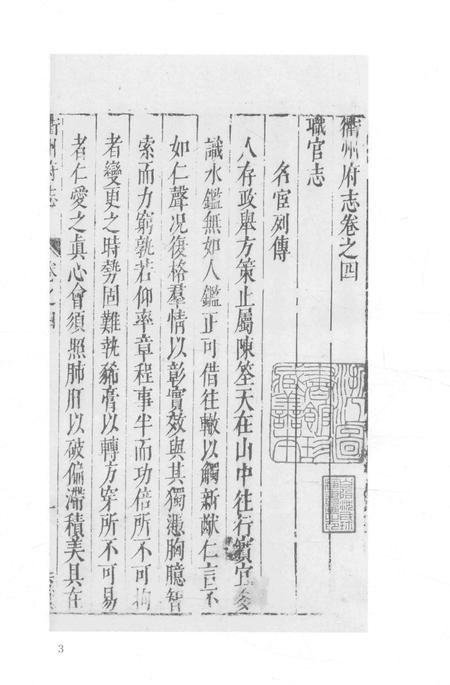 衢州府志卷之四
職官志
名宦列傳
人存政舉方策止屬陳筌天在山中往行實宜多
識水鑑無如人鑑正可借往轍以觸新猷仁言不
如仁聲况復格羣情以彰實效與其獨慿胸臆智
索而力窮孰若仰率章程事半而功倍所不可拘
者變更之時勢固難執豨膏以轉方穿所不可易
者仁愛之真心會須照肺肝以破偏滯積美具在
衢州府志
卷之四
一
3